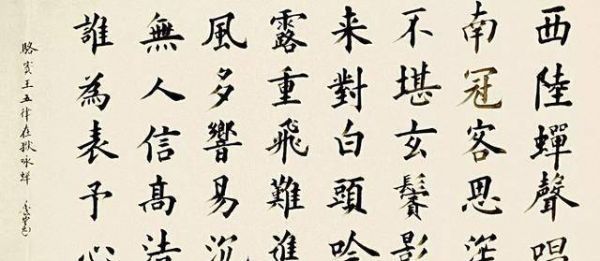 西陸蟬聲唱
南冠客思深
不堪玄鬢影
来對白頭吟
露重飛難進
風多響易沉
無人信高潔
誰為表予心
駱賓王五律在獄咏蟬